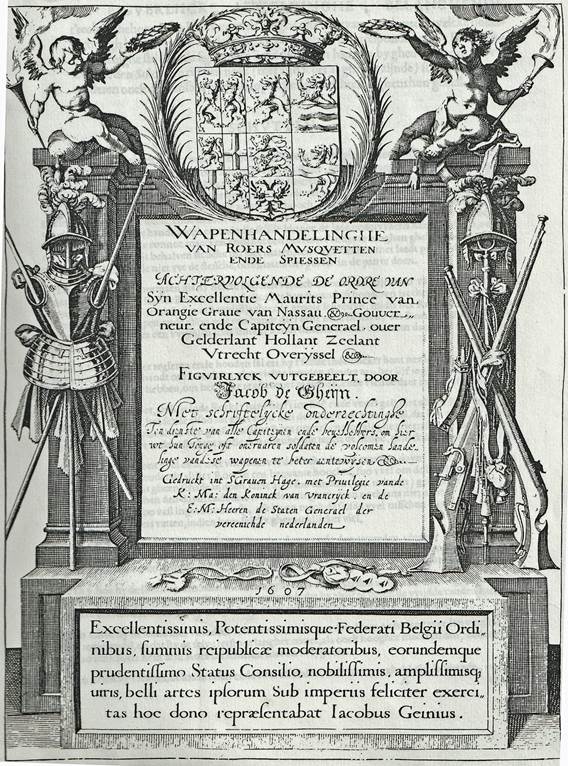 WAPENHANDELINGHE
VAN ROERS MVSQVETTEN
ENDE SPIESSEN
ACHTERVOLGENDE DE ORDRE VAN
Syn Excellentie Maurits Prince van
Orangie Graue van Nassau. &c. Gouuer„
neur. ende Capiteyn Generael. ouer
Gelderlant Hollant Zeelant
Vtrecht Overÿssel &c
FIGVIRLYCK VUTGEBEELT, DOOR
Jacob de Gheijn.
Met schriftelijcke onderrechtinghe
Ten dienste van alle Capiteynen ende beuelhebbers, om hier
wt hun Jonge oft onervaren soldaten de volcomen hande„
linge van dese wapenen te beter aentewysen. &c
Gedruckt int SGrauen Hage. met Privilegie vande
K: Ma: den Koninck van Vrancryck. en de
E.M: Heeren de Staten Generael der
vereenichde nederlanden
1607
Excellentissimis, Potentissimisque Federati Belgii Ordi„
nibus, summis reipublicæ moderatoribus, eorundemque
prudentissimo Status Consilio, nobilissimis, amplissimisq,
uiris, belli artes ipsorum Sub imperiis feliciter exerci„
tas hoc dono repræsentabat Iacobus Geinius.